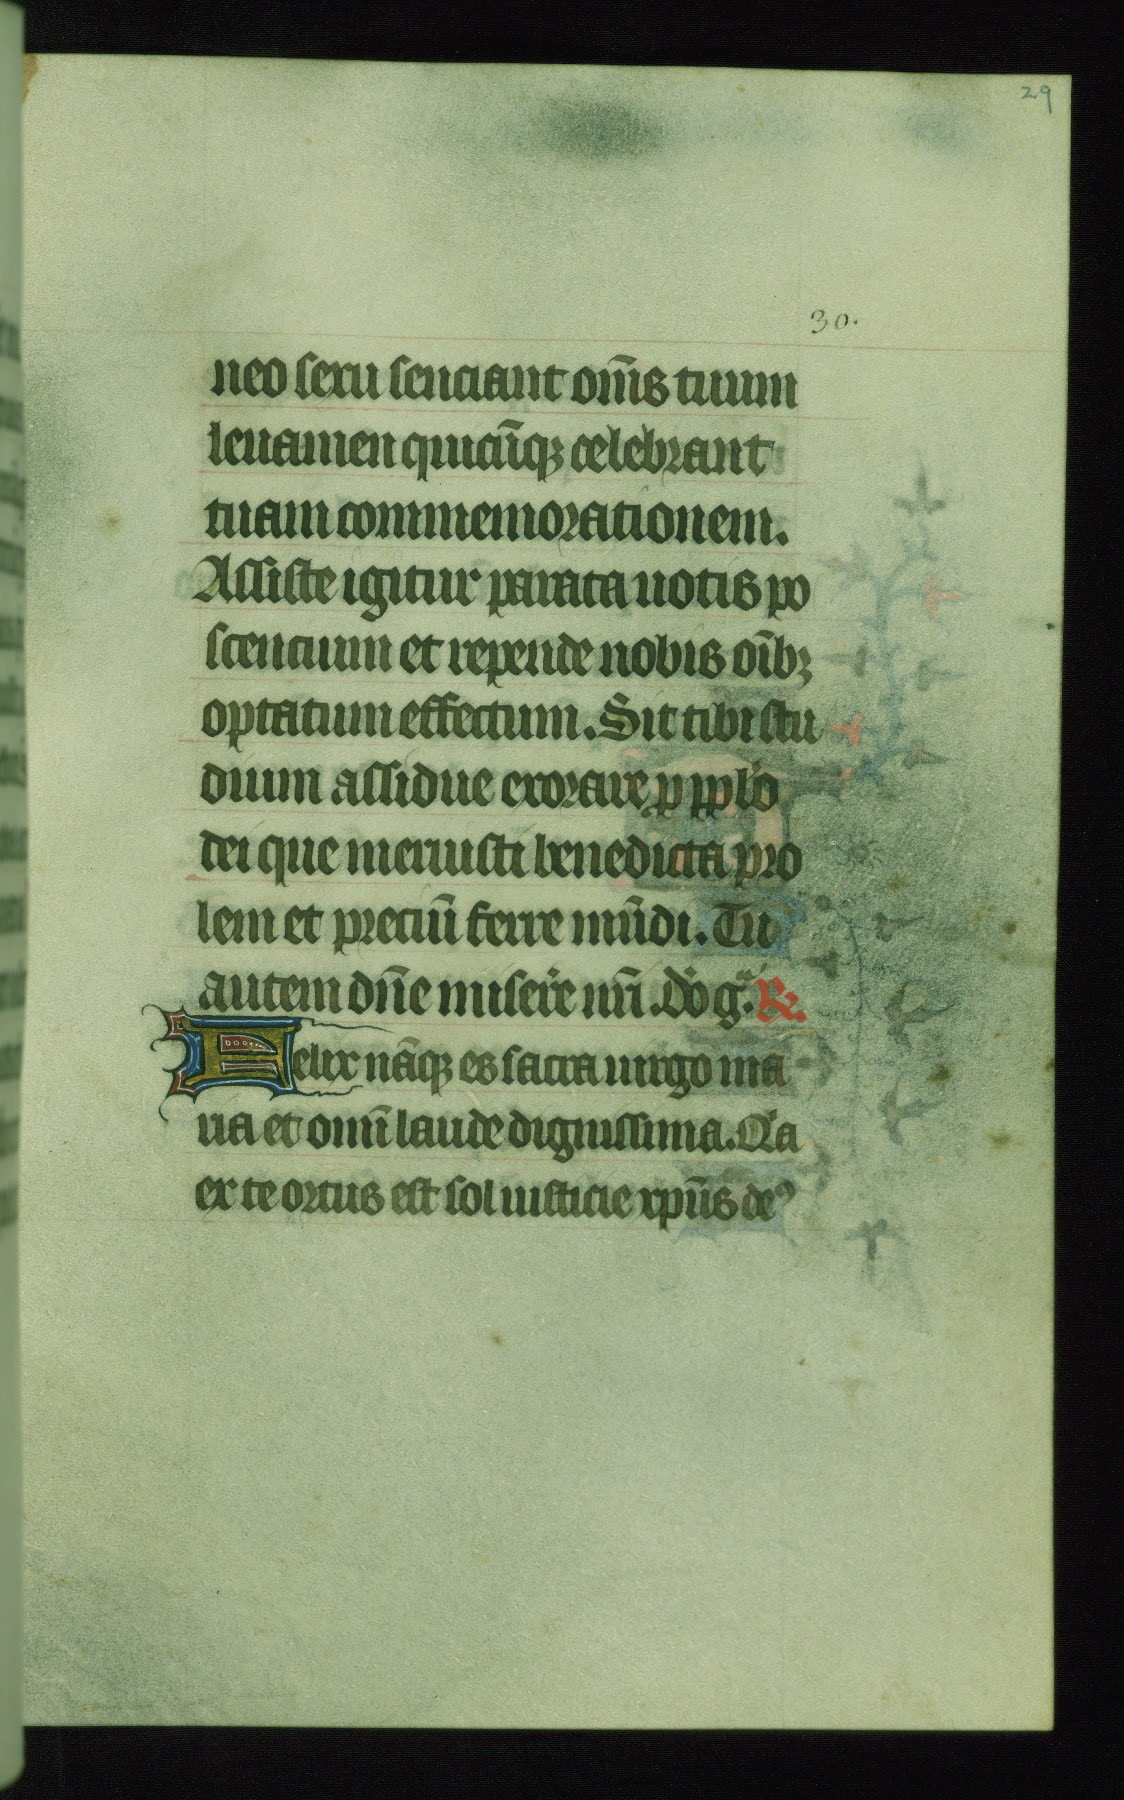 29
30.
neo sexu senciant om̄s tuum
leuamen quicūqꝫ celebrant
tuam commemorationem.
Assiste igitur parata uotis po
scencium et repende nobis oībꝫ
optatum effectum. Sit tibi stu
dium assidue exorare p pplo
dei que meruisti benedicta pro
lem et preciū ferre mūdi. Tu
autem dn̄e miserere nr̄i. Do gᵃ. R.
Felix nāqꝫ es sacra uirgo ma
ria et omī laude dignissima. Qa
ex te ortus est sol iusticie xp̄us deꝰ